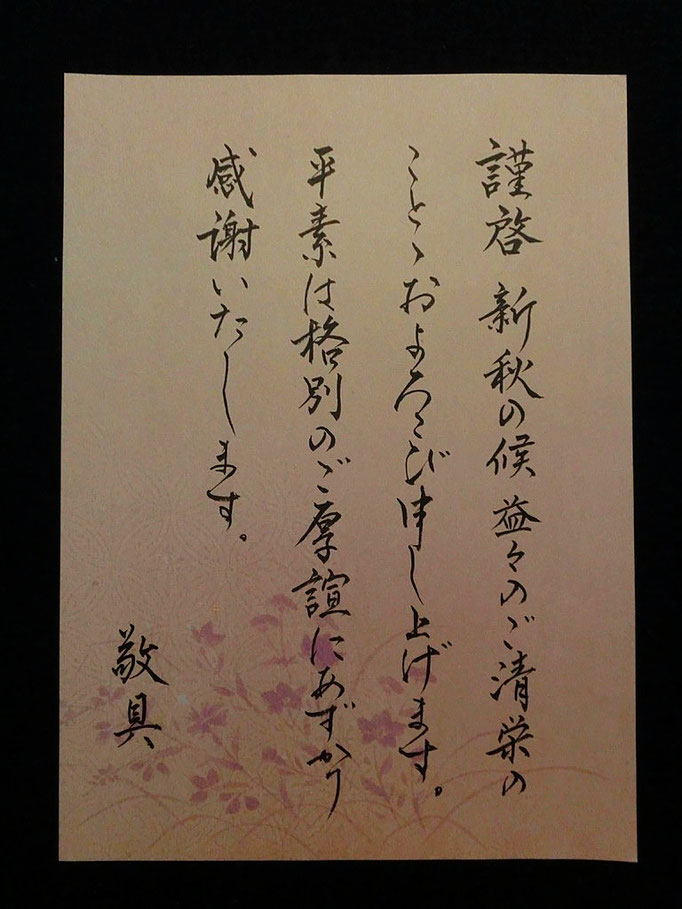 謹啓 新秋の候 益々のご清栄の
ことゝおよろこび申し上げます。
平素は格別のご厚誼にあずかり
感謝いたします。
敬具